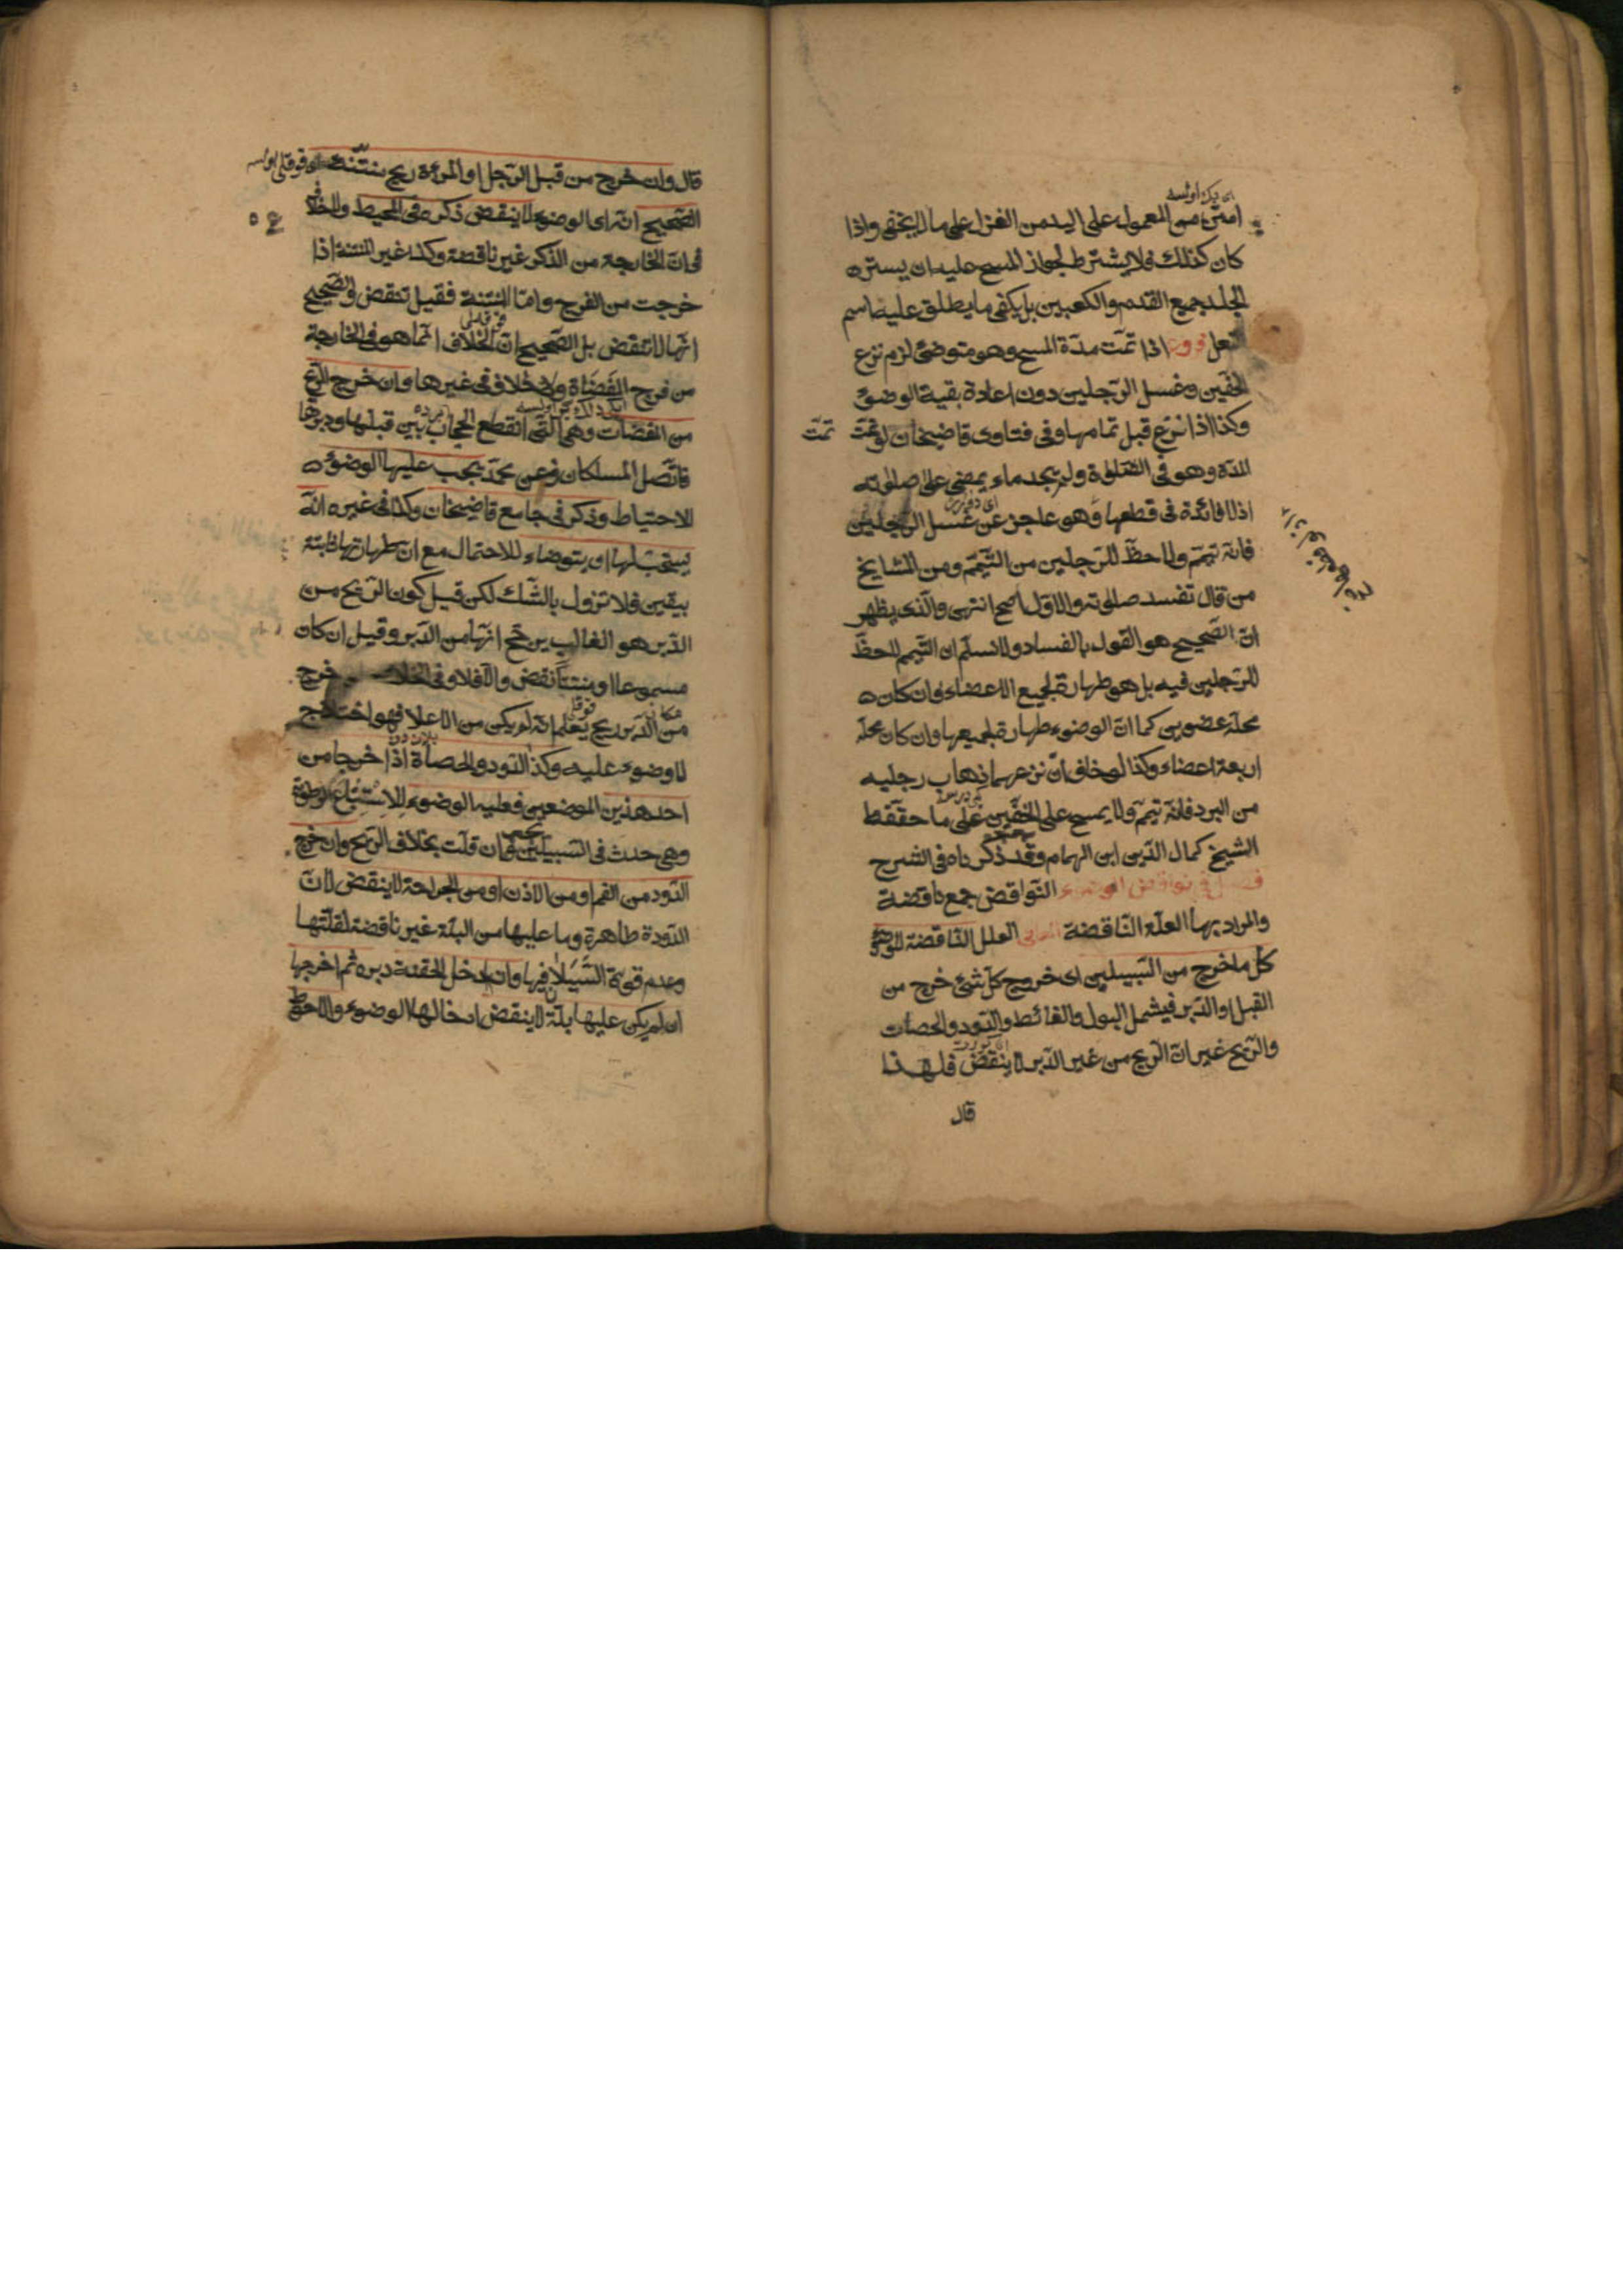 امتن من المعمول على اليد من الغزل على ما لا يخفى واذا
كان كذلك فلا يشترط لجواز المسح عليه ان يستره
الجلد جميع القدم والكعبين بل يكفى ما يطلق عليه اسم
النعل فروع اذا تمّت مدّة المسح وهو متوضئ لزم نزع
الخفّين وغسل الرّجلين دون اعادة بقية الوضوء
وكذا اذا نزع قبل تمامها وفى فتاوى قاضيخان لو تمّت
المدّة وهو فى الصّلوة ولم يجد ماء يمضى على صلوته
اذ لا فائدة فى قطعها وهو عاجز عن غسل الرّجلين
فانه تيمّم ولا حظّ للرّجلين من التّيمّم ومن المشايخ
من قال تفسد صلوته والاوّل اصح انتهى والّذى يظهر
انّ الصّحيح هو القول بالفساد ولا نسلّم ان التّيمم لا حظّ
للرّجلين فيه بل هو طهارة لجميع الاعضاء وان كان
محلّه عضوين كما انّ الوضوء طهارة لجميعها وان كان محلّه
اربعة اعضاء وكذا لو خاف ان نزعهما ذهاب رجليه
من البرد فانّه تيمّم ولا يمسح على الخفّين على ما حقّقه
الشيخ كمال الدّين ابن الهمام وقد ذكرناه فى الشرح
فصل فى نواقض الوضوء النّواقض جمع ناقضة
والمراد بها العلّة النّاقضة المعانى العلل النّاقضة للوضوء
كلّ ما خرج من السّبيلين اى خروج كلّ شئ خرج من
القبل او الدّبر فيشمل البول والغائط والدّود والحصات
والرّيح غير انّ الرّيح من غير الدّبر لا ينقض فلهذا
قال
تمّت
قال وان خرج من قبل الرّجل او المرءة ريح منتنة
الصّحيح انّه اى الوضوء لا ينقض ذكره فى المحيط والخلاف
فى انّ الخارجة من الذّكر غير ناقضة وكذا غير المنتنة اذا
خرجت من الفرج وامّا المنتنة فقيل تنقض والصّحيح
انّها لا تنقض بل الصّحيح انّ الخلاف انّما هو فى الخارجة
من فرج المفضاة ولا خلاف فى غيرها وان خرج الرّيح
من المفضات وهى الّتى انقطع الحجاب بين قبلها ودبرها
فاتّصل المسلكان فعن محمّد يجب عليها الوضوء
للاحتياط وذكر فى جامع قاضيخان وكذا فى غيره انّه
يستحبّ لها ان يتوضاء للاحتمال مع ان طهارتها ثابتة
بيقين فلا تزول بالشّك لكن قيل كون الرّيح من
الدّبر هو الغالب يرجّح انّها من الدّبر وقيل ان كان
مسموعا او منتنا نقض والّا فلا وفى الخلاصة خرج
من الدّبر ريح يعلم انّه لم يكن من الاعلا فهو اختلاج
لا وضوء عليه وكذ الدّود والحصاة اذا خرجا من
احد هذين الموضعين فعليه الوضوء لاستتباع الرّطوبة
وهى حدث فى السّبيلين وان قلّت بخلاف الرّيح وان خرج
الدّود من الفم او من الاذن او من الجراحة لا ينقض لانّ
الدّودة طاهرة وما عليها من البلّة غير ناقضة لقلّتها
وعدم قوّة السّيلان فيها وان ادخل الحقنة دبره ثم اخرجها
ان لم يكن عليها بلّة لا ينقض ادخالها الوضوء والاحوط